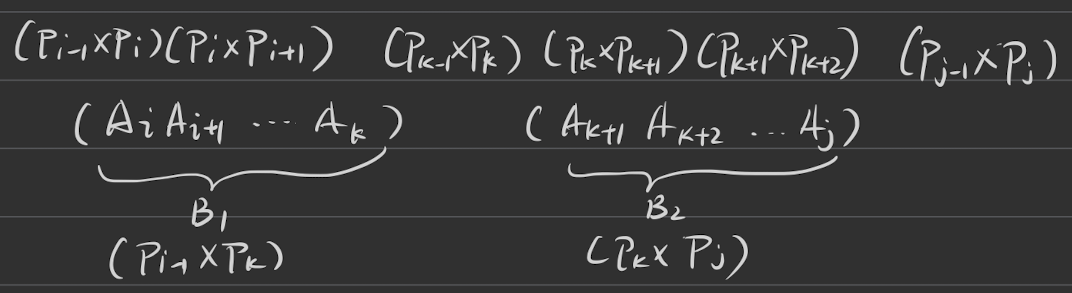 (Pi-1×Pi)(Pi×Pi+1) (Pk-1×Pk) (Pk×Pk+1)(Pk+1×Pk+2) (Pj-1×Pj)
(Ai Ai+1 ... Ak) (Ak+1 Ak+2 ... Aj)
B1 B2
(Pi-1×Pk) (Pk×Pj)